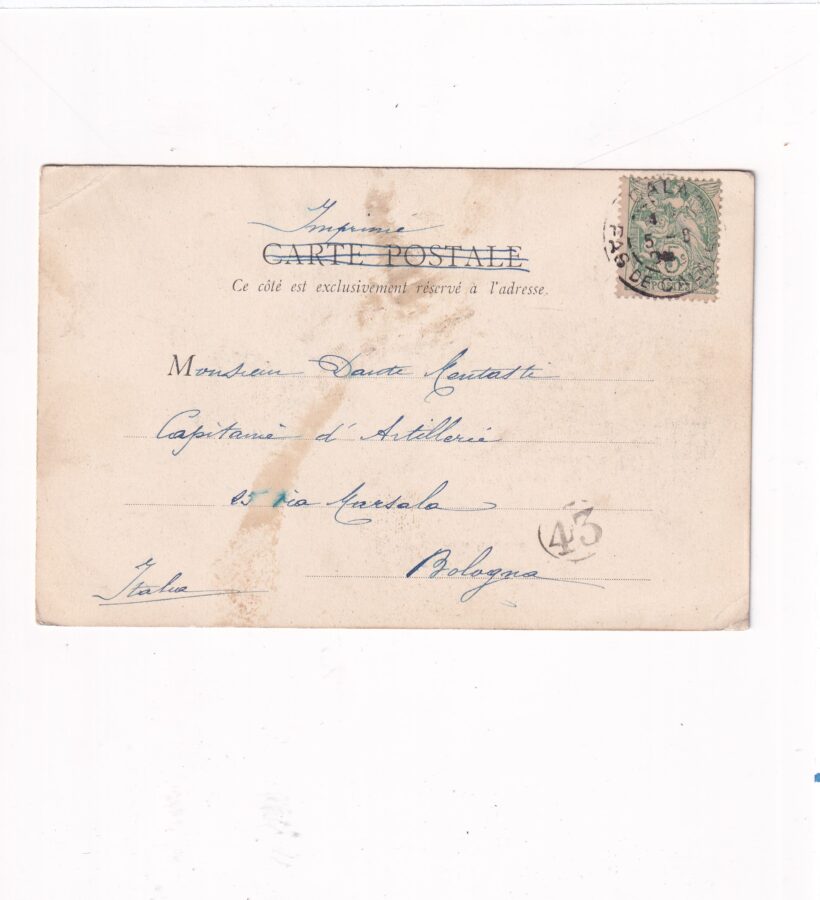 Imprimé
CARTE POSTALE
Ce côté est exclusivement réservé à l'adresse.
Monsieur Dante Mentasti
Capitaine d'Artillerie
25 via Marsala
Bologna
Italia
43
CALA
4
5 - 8
PAS DE CALAIS
5
POSTES